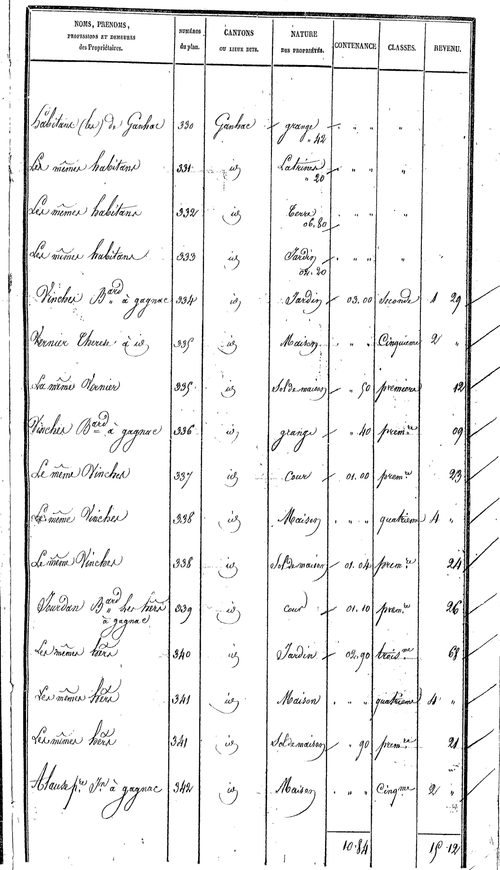 NOMS, PRENOMS, PROFESSIONS ET DEMEURES des Propriétaires. NUMÉROS du plan. CANTONS OU LIEUX DITS. NATURE DES PROPRIÉTÉS. CONTENANCE CLASSES. REVENU.
habitans (les) de Ganhac 330 Ganhac grange " " " "
" 42
Les mêmes habitans 331 id Latrines " " " "
" 20
Les mêmes habitans 332 id Terre " " " "
06.80
Les mêmes habitans 333 id Jardin " " " "
02.20
Vinches Bard à gagnac 334 id Jardin 03.00 Seconde 1 29
Vernier Therese à id 335 id Maison " " Cinquieme 2 "
La même Vernier 335 id Sol de maison " 50 premiere 12
Vinches Bard à gagnac 336 id grange " 40 premre 09
Le même Vinches 337 id Cour 01.00 premre 23
Le même Vinches 338 id Maison " " quatrieme 4 "
Le même Vinches 338 id Sol de maison 01.04 premre 24
Jourdan Bard les hérs à gagnac 339 id Cour 01.10 premre 26
Les mêmes hérs 340 id Jardin 02.90 troisme 68
Les mêmes hérs 341 id Maison " " quatrieme 4 "
Les mêmes hérs 341 id Sol de maison " 90 premre 21
à gagnac 342 id Maison " " Cinqme 2 "
10.84 15 12